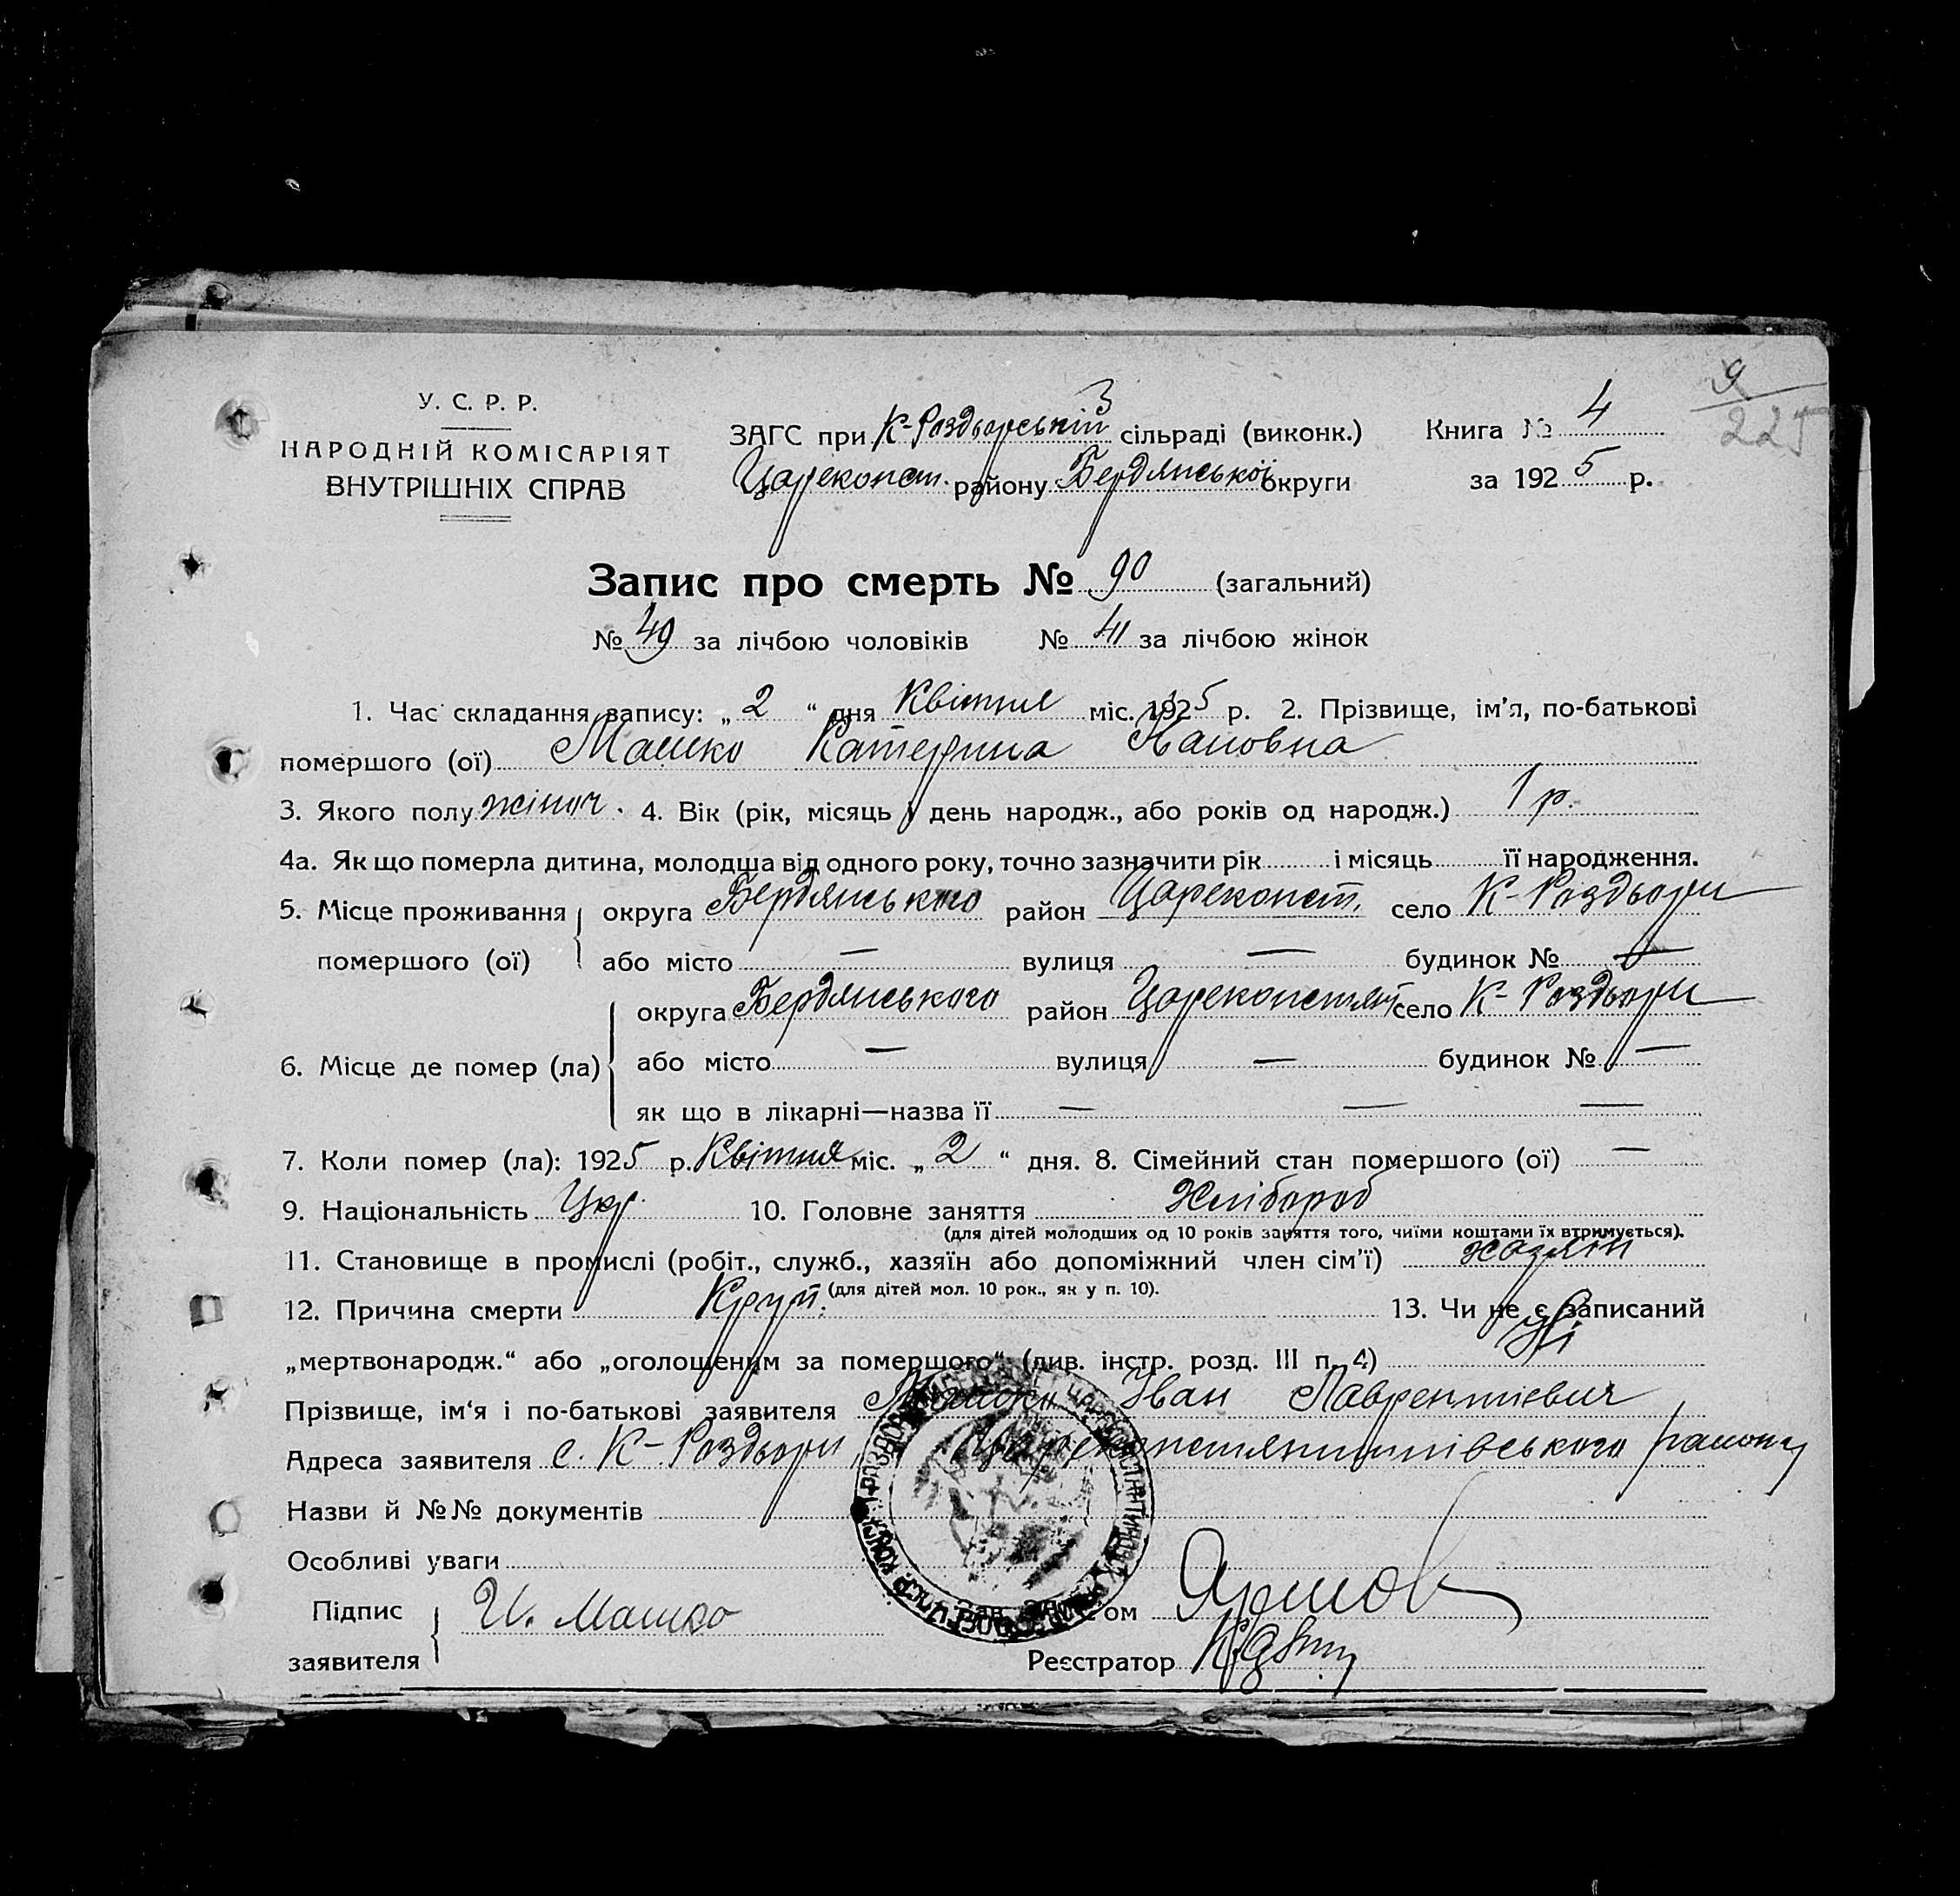 У. С. Р. Р.
НАРОДНІЙ КОМІСАРІЯТ
ВНУТРІШНІХ СПРАВ
ЗАГС при К-Роздьорській 3 сільраді (виконк.)
Царекопст. району Бердянської округи
Книга № 4
за 1925 р.
9
225
Запис про смерть № 90 (загальний)
№ 49 за лічбою чоловіків № 41 за лічбою жінок
1. Час складання запису: „ 2 “ дня Квітня міс. 1925 р. 2. Прізвище, ім'я, по-батькові
помершого (ої) Машко Катерина Івановна
3. Якого полу жіноч. 4. Вік (рік, місяць і день народж., або років од народж.) 1 р.
4а. Як що померла дитина, молодша від одного року, точно зазначити рік і місяць її народження.
5. Місце проживання округа Бердянського район Царекопст. село К-Роздьори
помершого (ої) або місто — вулиця — будинок № —
округа Бердянського район Царекопстянт село К-Роздьори
6. Місце де помер (ла) або місто — вулиця — будинок № —
як що в лікарні—назва її — — —
7. Коли помер (ла): 1925 р. Квітня міс. „ 2 “ дня. 8. Сімейний стан помершого (ої) —
9. Національність Укр. 10. Головне заняття Хлібороб
(для дітей молодших од 10 років заняття того, чиїми коштами їх втримується).
11. Становище в промислі (робіт., служб., хазяїн або допоміжний член сім'ї) хазяїн
(для дітей мол. 10 рок., як у п. 10).
12. Причина смерти Круп. 13. Чи не є записаний
„мертвонародж.“ або „оголошеним за помершого“ (див. інстр. розд. III п. 4) Ні
Прізвище, ім'я і по-батькові заявителя Машко Іван Лаврентієвич
Адреса заявителя с. К-Роздьори, Царекопстянтинівського району
Назви й №№ документів
Особливі уваги
Підпис
заявителя И. Машко
Зав. ЗАГС'ом
Реєстратор